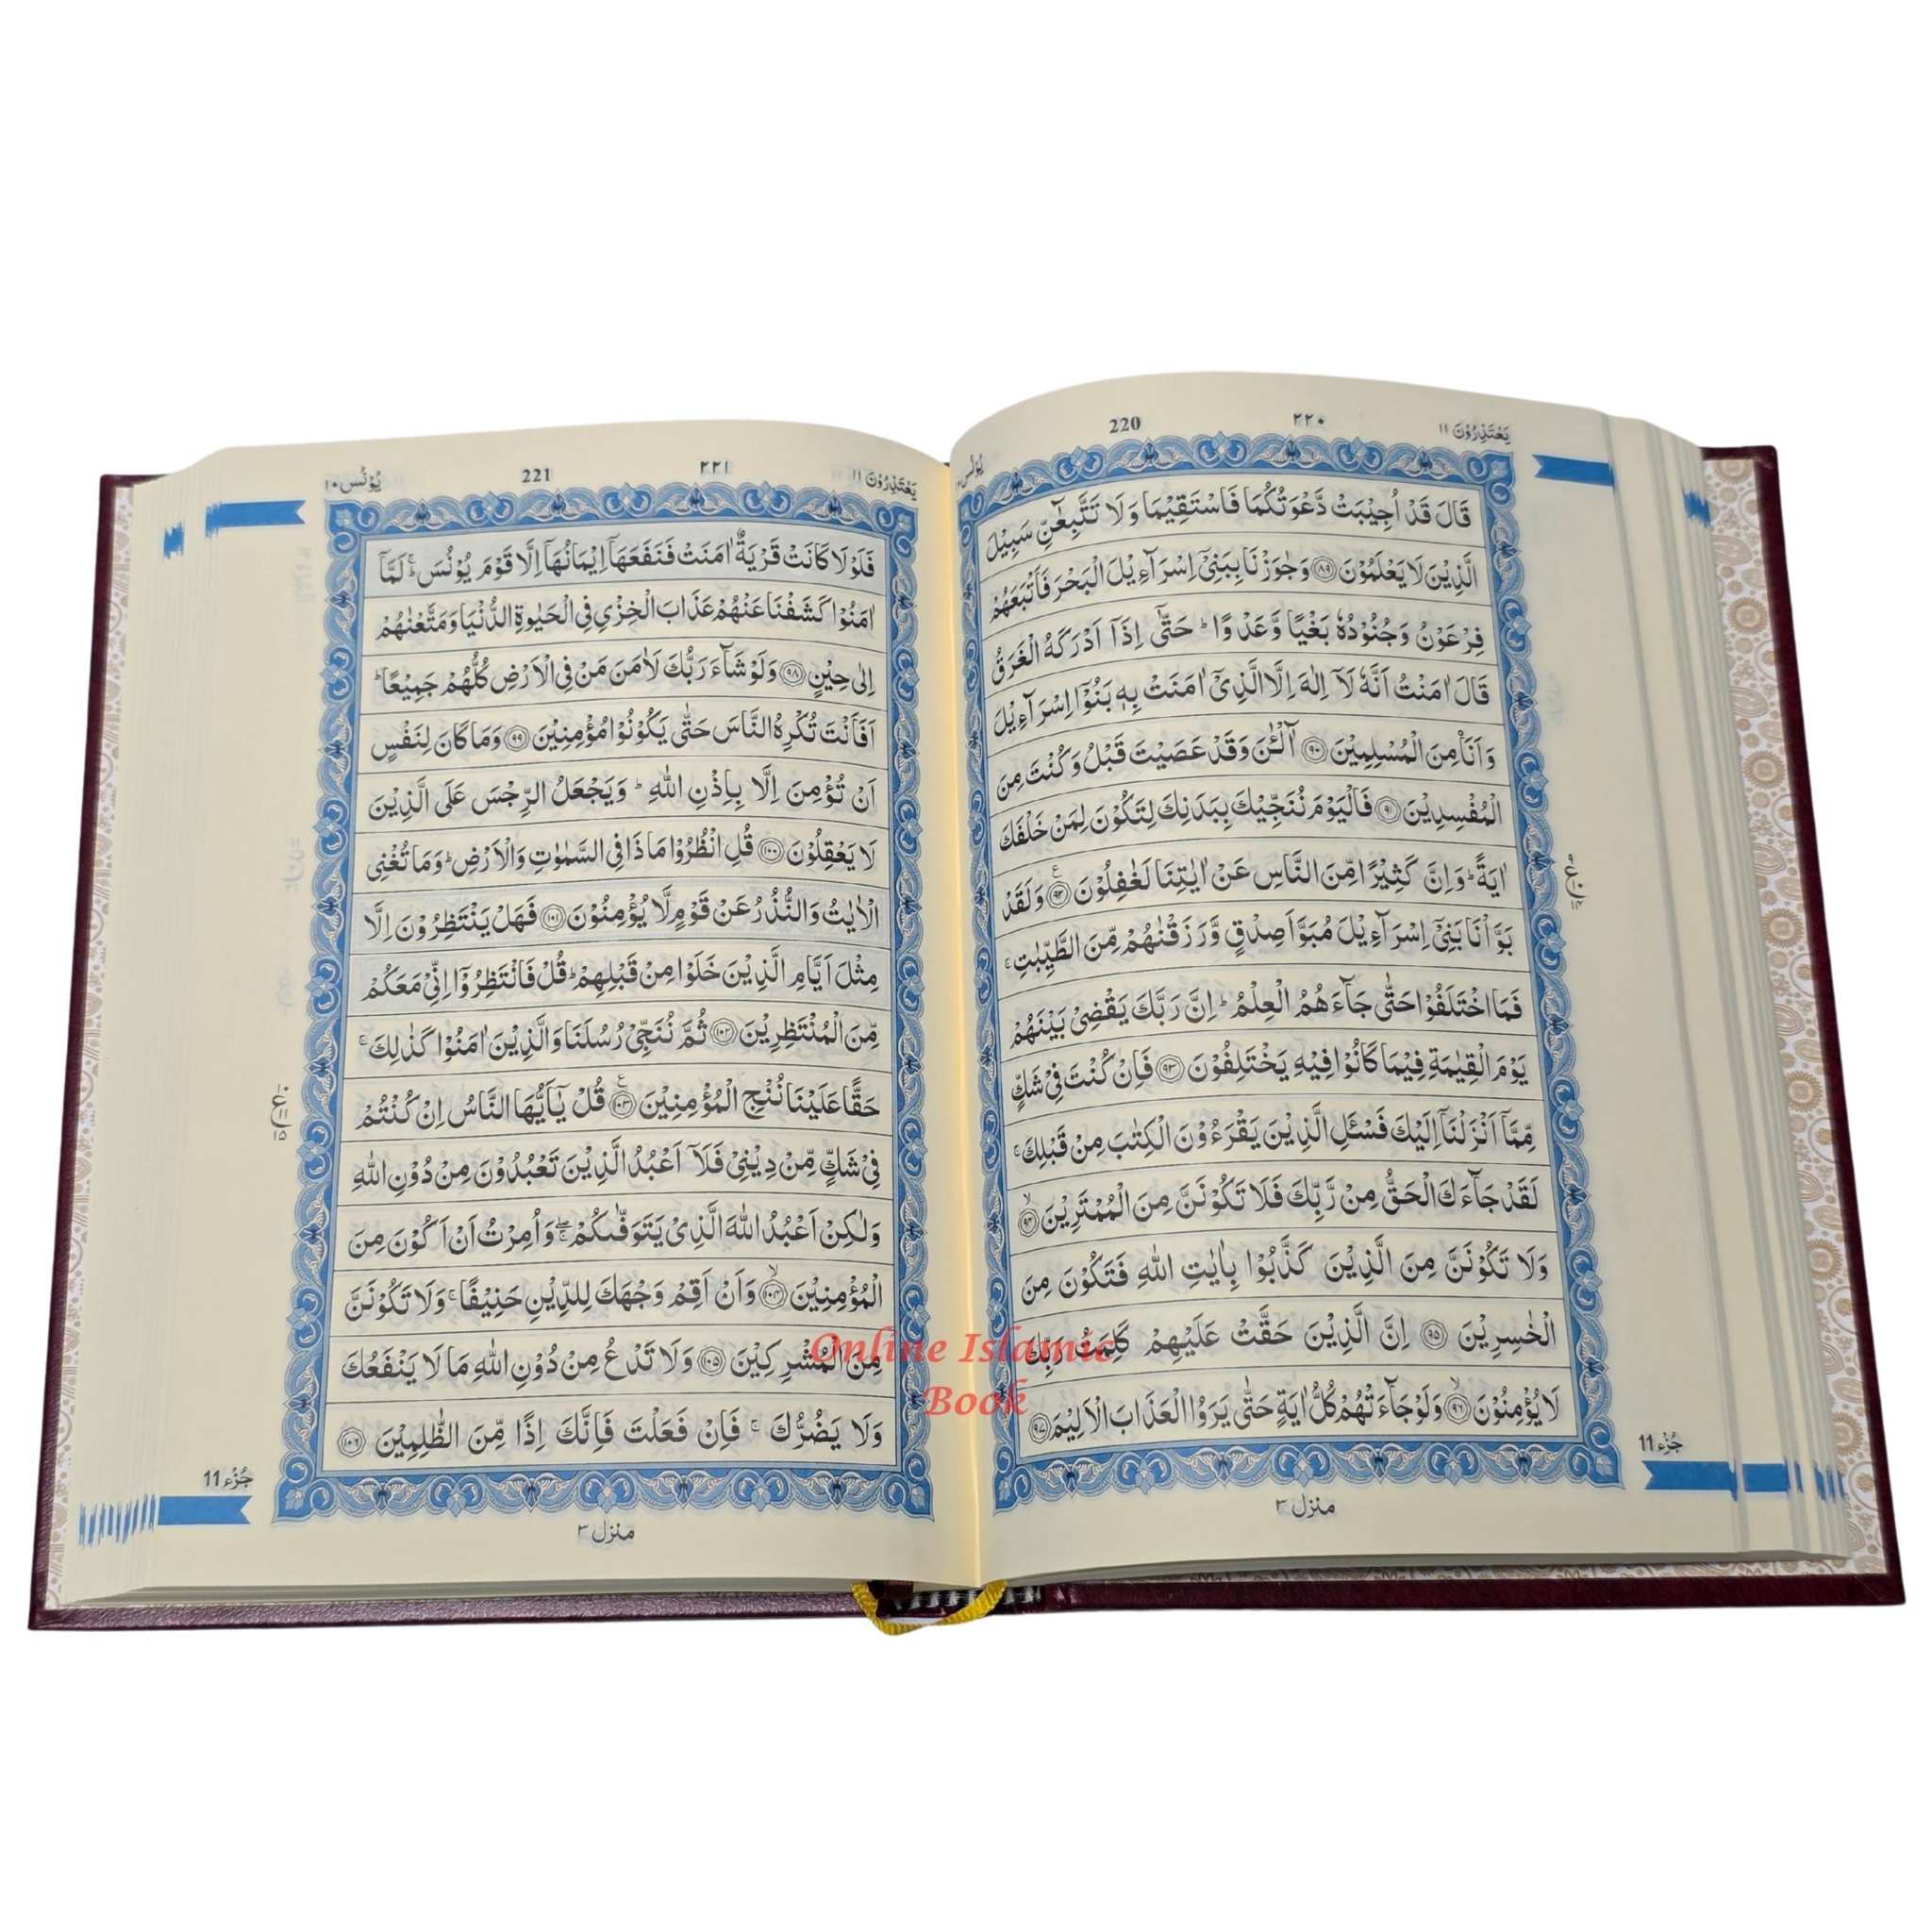 يَعْتَذِرُوْنَ ١١
٢٢٠
220
يُوْنُس
قَالَ قَدْ اُجِيْبَتْ دَّعْوَتُكُمَا فَاسْتَقِيْمَا وَلَا تَتَّبِعٰٓنِّ سَبِيْلَ
الَّذِيْنَ لَا يَعْلَمُوْنَ ۝٨٩ وَجٰوَزْنَا بِبَنِيْۤ اِسْرَآءِيْلَ الْبَحْرَ فَاَتْبَعَهُمْ
فِرْعَوْنُ وَجُنُوْدُهٗ بَغْيًا وَّعَدْوًا ؕ حَتّٰۤى اِذَاۤ اَدْرَكَهُ الْغَرَقُ
قَالَ اٰمَنْتُ اَنَّهٗ لَاۤ اِلٰهَ اِلَّا الَّذِيْۤ اٰمَنَتْ بِهٖ بَنُوْۤا اِسْرَآءِيْلَ
وَاَنَا۠ مِنَ الْمُسْلِمِيْنَ ۝٩٠ آٰلْـٰٔنَ وَقَدْ عَصَيْتَ قَبْلُ وَكُنْتَ مِنَ
الْمُفْسِدِيْنَ ۝٩١ فَالْيَوْمَ نُنَجِّيْكَ بِبَدَنِكَ لِتَكُوْنَ لِمَنْ خَلْفَكَ
اٰيَةً ؕ وَاِنَّ كَثِيْرًا مِّنَ النَّاسِ عَنْ اٰيٰتِنَا لَغٰفِلُوْنَ ۝٩٢ وَلَقَدْ
بَوَّاْنَا بَنِيْۤ اِسْرَآءِيْلَ مُبَوَّاَ صِدْقٍ وَّرَزَقْنٰهُمْ مِّنَ الطَّيِّبٰتِ ۚ
فَمَا اخْتَلَفُوْا حَتّٰى جَآءَهُمُ الْعِلْمُ ؕ اِنَّ رَبَّكَ يَقْضِيْ بَيْنَهُمْ
يَوْمَ الْقِيٰمَةِ فِيْمَا كَانُوْا فِيْهِ يَخْتَلِفُوْنَ ۝٩٣ فَاِنْ كُنْتَ فِيْ شَكٍّ
مِّمَّاۤ اَنْزَلْنَاۤ اِلَيْكَ فَسْـَٔلِ الَّذِيْنَ يَقْرَءُوْنَ الْكِتٰبَ مِنْ قَبْلِكَ ۚ
لَقَدْ جَآءَكَ الْحَقُّ مِنْ رَّبِّكَ فَلَا تَكُوْنَنَّ مِنَ الْمُمْتَرِيْنَ ۝٩٤ۙ
وَلَا تَكُوْنَنَّ مِنَ الَّذِيْنَ كَذَّبُوْا بِاٰيٰتِ اللّٰهِ فَتَكُوْنَ مِنَ
الْخٰسِرِيْنَ ۝٩٥ اِنَّ الَّذِيْنَ حَقَّتْ عَلَيْهِمْ كَلِمَتُ رَبِّكَ
لَا يُؤْمِنُوْنَ ۝٩٦ۙ وَلَوْ جَآءَتْهُمْ كُلُّ اٰيَةٍ حَتّٰى يَرَوُا الْعَذَابَ الْاَلِيْمَ ۝٩٧
جُزْء 11
منزل ٣
يَعْتَذِرُوْنَ ١١
٢٢١
221
يُوْنُس ١٠
فَلَوْلَا كَانَتْ قَرْيَةٌ اٰمَنَتْ فَنَفَعَهَاۤ اِيْمَانُهَاۤ اِلَّا قَوْمَ يُوْنُسَ ؕ لَمَّاۤ
اٰمَنُوْا كَشَفْنَا عَنْهُمْ عَذَابَ الْخِزْيِ فِي الْحَيٰوةِ الدُّنْيَا وَمَتَّعْنٰهُمْ
اِلٰى حِيْنٍ ۝٩٨ وَلَوْ شَآءَ رَبُّكَ لَاٰمَنَ مَنْ فِي الْاَرْضِ كُلُّهُمْ جَمِيْعًا ؕ
اَفَاَنْتَ تُكْرِهُ النَّاسَ حَتّٰى يَكُوْنُوْا مُؤْمِنِيْنَ ۝٩٩ وَمَا كَانَ لِنَفْسٍ
اَنْ تُؤْمِنَ اِلَّا بِاِذْنِ اللّٰهِ ؕ وَيَجْعَلُ الرِّجْسَ عَلَى الَّذِيْنَ
لَا يَعْقِلُوْنَ ۝١٠٠ قُلِ انْظُرُوْا مَاذَا فِي السَّمٰوٰتِ وَالْاَرْضِ ؕ وَمَا تُغْنِي
الْاٰيٰتُ وَالنُّذُرُ عَنْ قَوْمٍ لَّا يُؤْمِنُوْنَ ۝١٠١ فَهَلْ يَنْتَظِرُوْنَ اِلَّا
مِثْلَ اَيَّامِ الَّذِيْنَ خَلَوْا مِنْ قَبْلِهِمْ ؕ قُلْ فَانْتَظِرُوْۤا اِنِّيْ مَعَكُمْ
مِّنَ الْمُنْتَظِرِيْنَ ۝١٠٢ ثُمَّ نُنَجِّيْ رُسُلَنَا وَالَّذِيْنَ اٰمَنُوْا كَذٰلِكَ ۚ
حَقًّا عَلَيْنَا نُنْجِ الْمُؤْمِنِيْنَ ۝١٠٣ قُلْ يٰۤاَيُّهَا النَّاسُ اِنْ كُنْتُمْ
فِيْ شَكٍّ مِّنْ دِيْنِيْ فَلَاۤ اَعْبُدُ الَّذِيْنَ تَعْبُدُوْنَ مِنْ دُوْنِ اللّٰهِ
وَلٰكِنْ اَعْبُدُ اللّٰهَ الَّذِيْ يَتَوَفّٰىكُمْ ۖ وَاُمِرْتُ اَنْ اَكُوْنَ مِنَ
الْمُؤْمِنِيْنَ ۝١٠٤ۙ وَاَنْ اَقِمْ وَجْهَكَ لِلدِّيْنِ حَنِيْفًا ۚ وَلَا تَكُوْنَنَّ
مِنَ الْمُشْرِكِيْنَ ۝١٠٥ وَلَا تَدْعُ مِنْ دُوْنِ اللّٰهِ مَا لَا يَنْفَعُكَ
وَلَا يَضُرُّكَ ۚ فَاِنْ فَعَلْتَ فَاِنَّكَ اِذًا مِّنَ الظّٰلِمِيْنَ ۝١٠٦
جُزْء 11
منزل ٣
Online Islamic
Book